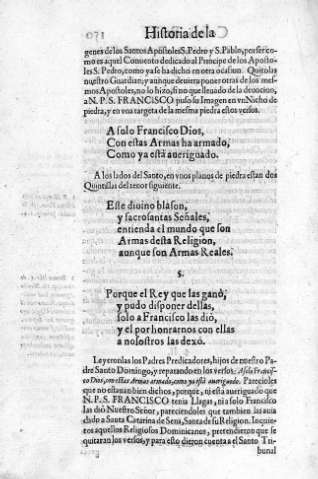 Historia de la
genes de los Santos Apóstoles S. Pedro y S. Pablo, por ser como
es aquel Convento dedicado al Principe de los Apostoles
S. Pedro, como ya se ha dicho en otra ocasion. Quitolas
nuestro Guardian; y aunque deviera poner otras de los mesmos
Apostoles, no lo hizo, si no que lleuado de la deuocion,
a N. P. S. FRANCISCO puso su Imagen en vn Nicho de
piedra, y en vna targeta de la mesma piedra estos versos.
A solo Francisco Dios,
Con estas Armas ha armado,
Como ya està aueriguado.
A los lados del Santo, en vnos planos de piedra estan dos
Quintillas del tenor siguiente.
Este diuino blason,
y sacrosantas Señales,
entienda el mundo que son
Armas desta Religion,
aunque son Armas Reales.
S.
Porque el Rey que las ganò,
y pudo disponer dellas,
solo a Francisco las diò,
y el por honrarnos con ellas
a nosotros las dexò.
Leyeronlas los Padres Predicadores, hijos de nuestro Padre
Santo Domingo, y reparando en los versos: A solo Francisco
Dios, con estas Armas armado, como ya està aueriguado. Parecioles
que no estauan bien dichos, porque, ni està aueriguado que
N. P. S. FRANCISCO tenia Llagas, ni a solo Francisco
las diò Nuestro Señor, pareciendoles que tambien las auia
dado a Santa Catarina de Sena, Santa de su Religion. Inquietos
aquellos Religiosos Dominicanos, pretendieron que se
quitaran los versos, y para esto dieron cuenta a el Santo Tribunal